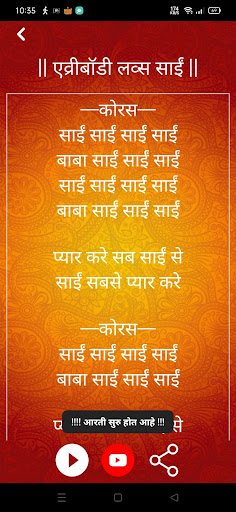 10:35
174 KB/S
|| एव्रीबॉडी लव्स साईं ||
—कोरस—
साईं साईं साईं साईं
बाबा साईं साईं साईं
साईं साईं साईं साईं
बाबा साईं साईं साईं
प्यार करे सब साईं से
साईं सबसे प्यार करे
—कोरस—
साईं साईं साईं साईं
बाबा साईं साईं साईं
!!!! आरती सुरु होत आहे !!!
से